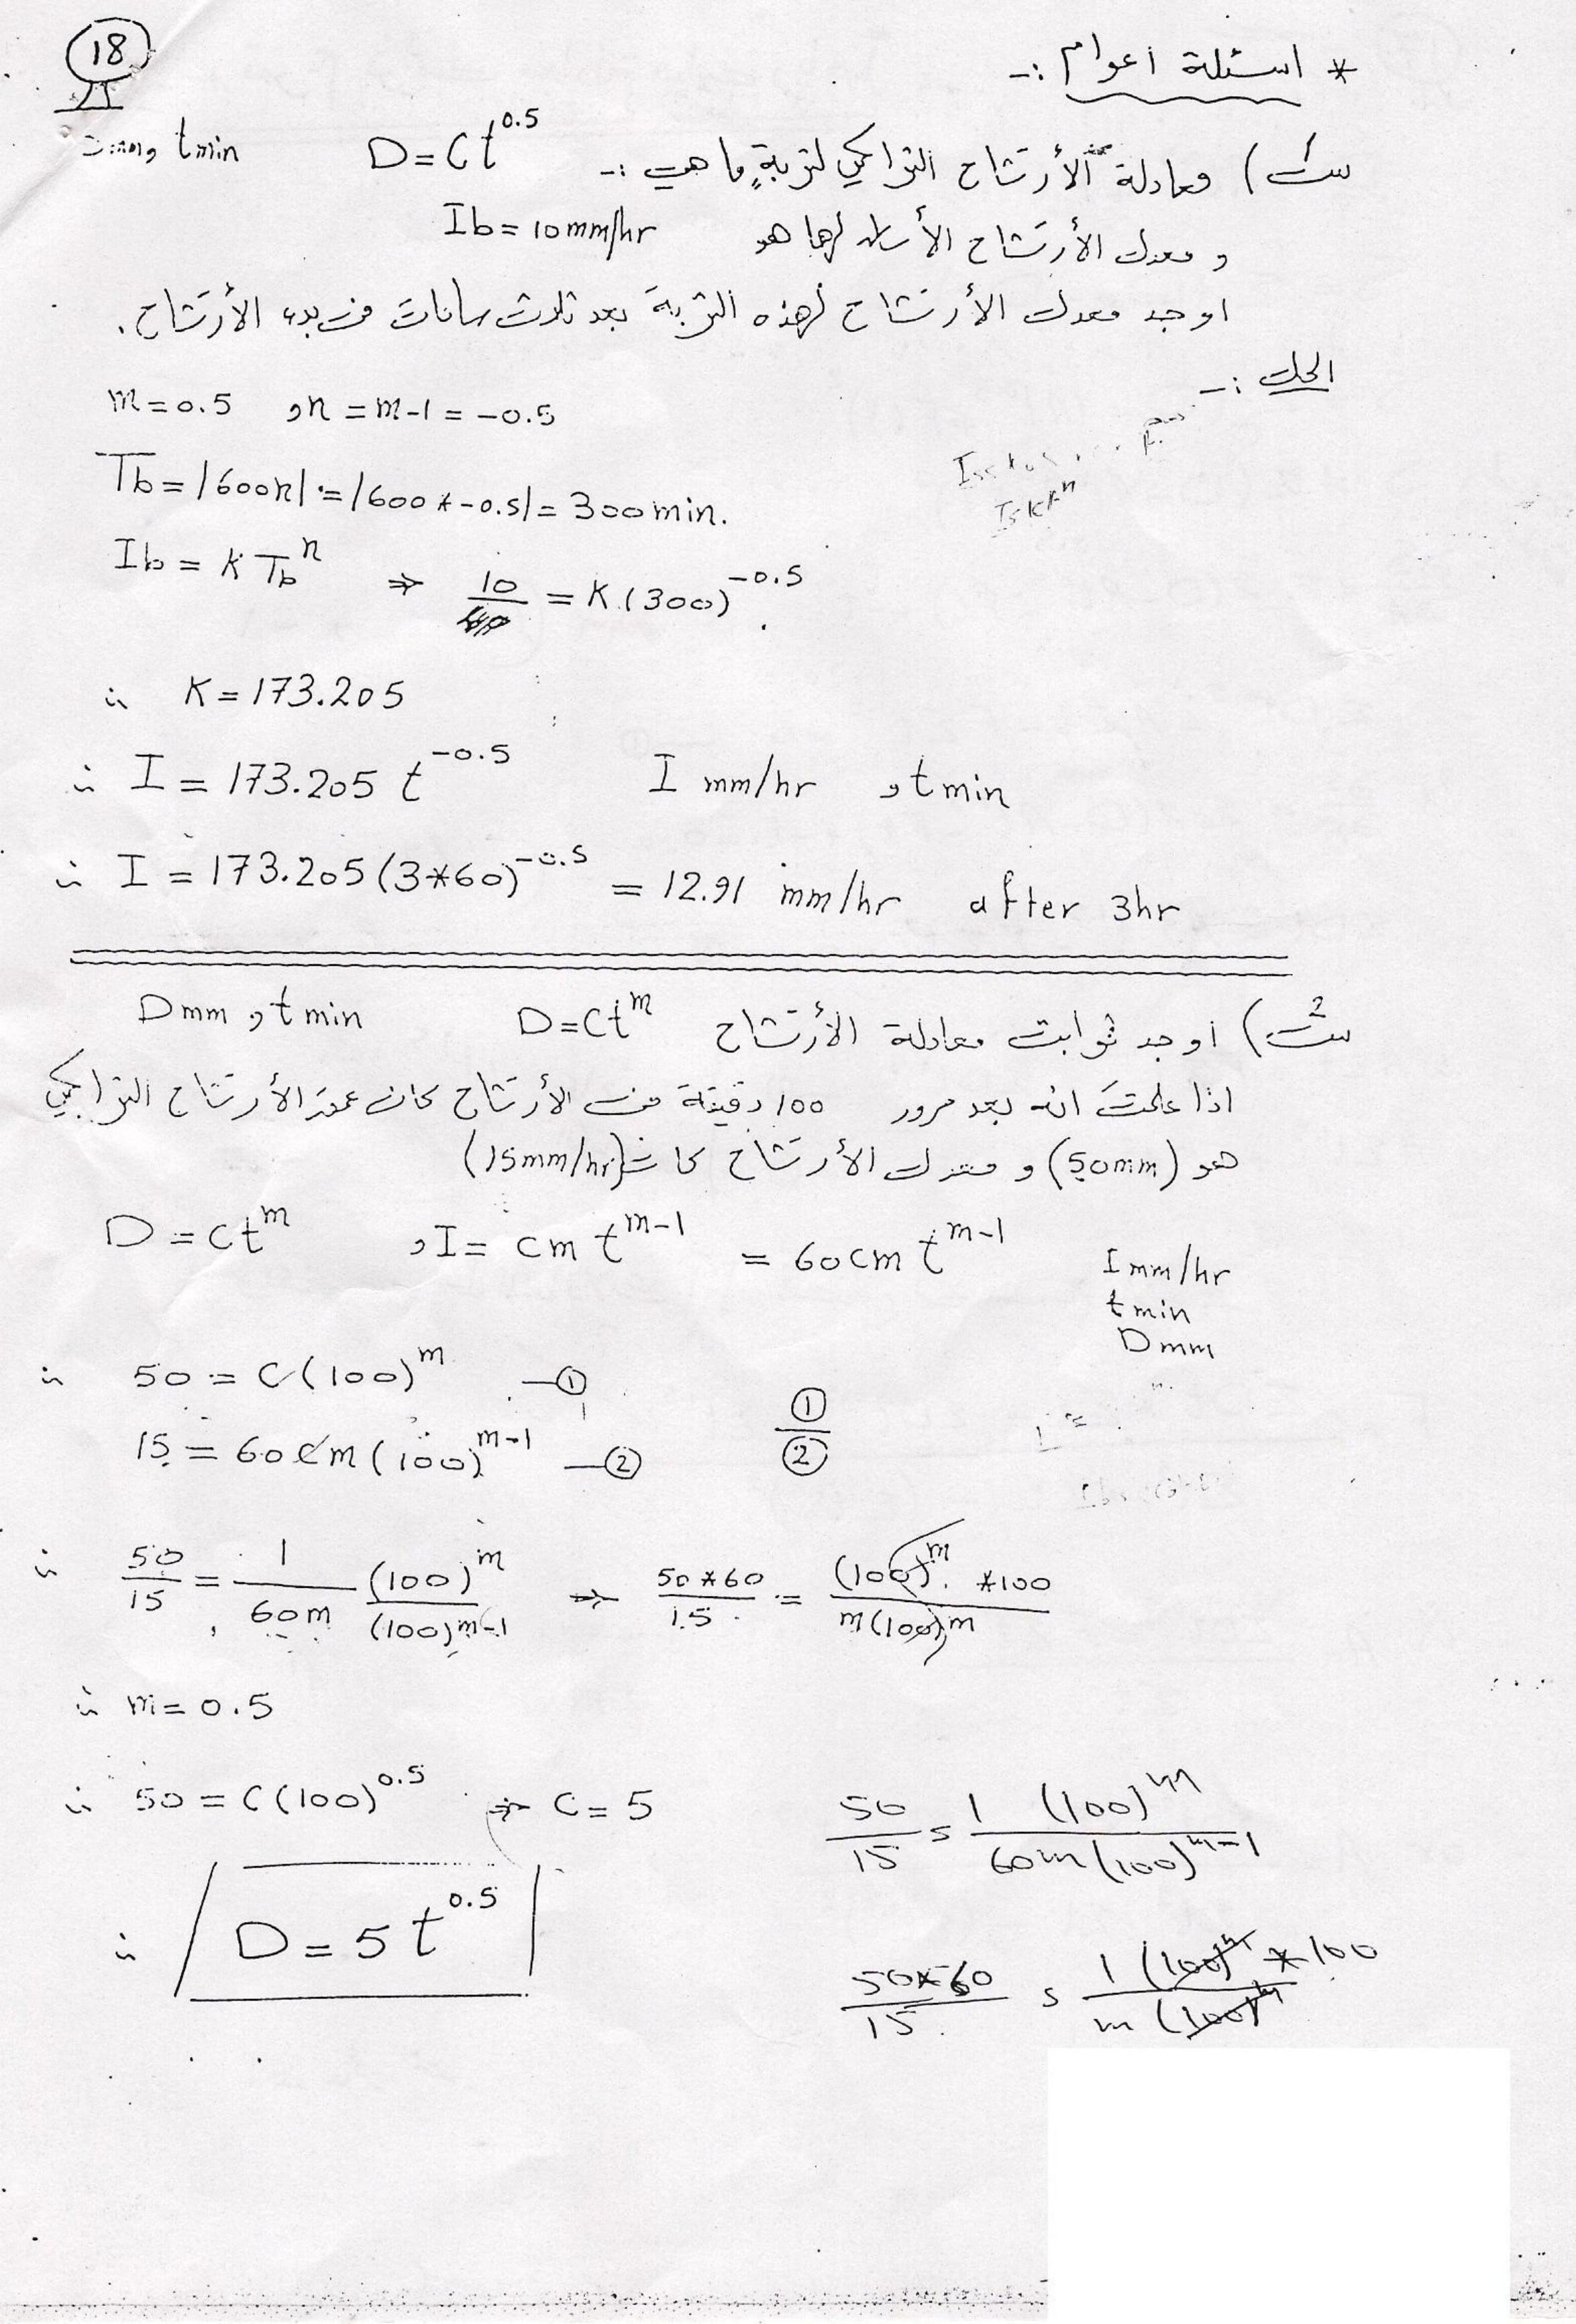 18
* اسئلة اعوام :-
س1) معادلة الأرتشاح التراكمي لتربةٍ ما هي :- D=Ct^0.5 D mm, t min
و معدل الأرتشاح الأساس لها هو Ib=10mm/hr
اوجد معدل الأرتشاح لهذه التربة بعد ثلاث ساعات من بدء الأرتشاح.
الحل :-
m=0.5 , n=m-1=-0.5
Tb=|600n|=|600*-0.5|=300min.
Ib=KTb^n ⇒ 10 = K(300)^-0.5
∴ K=173.205
∴ I=173.205 t^-0.5 I mm/hr , t min
∴ I=173.205(3*60)^-0.5 = 12.91 mm/hr after 3hr
س2) أوجد ثوابت معادلة الأرتشاح D=Ct^m D mm , t min
اذا علمت انه بعد مرور 100 دقيقة من الأرتشاح كان عمق الأرتشاح التراكمي
هو (50mm) و معدل الأرتشاح كان (15mm/hr)
D=Ct^m , I=Cm t^m-1 = 60Cm t^m-1 I mm/hr
t min
D mm
∴ 50=C(100)^m —①
15=60Cm(100)^m-1 —② ①/②
∴ 50/15 = 1/60m (100)^m/(100)^m-1 ⇒ 50*60/15 = (100)^m *100/m(100)^m
∴ m=0.5
∴ 50=C(100)^0.5 ⇒ C=5
50/15 = 1 (100)^m/60m(100)^m-1
∴ D=5t^0.5
50*60/15 = 1(100)^m *100/m(100)^m